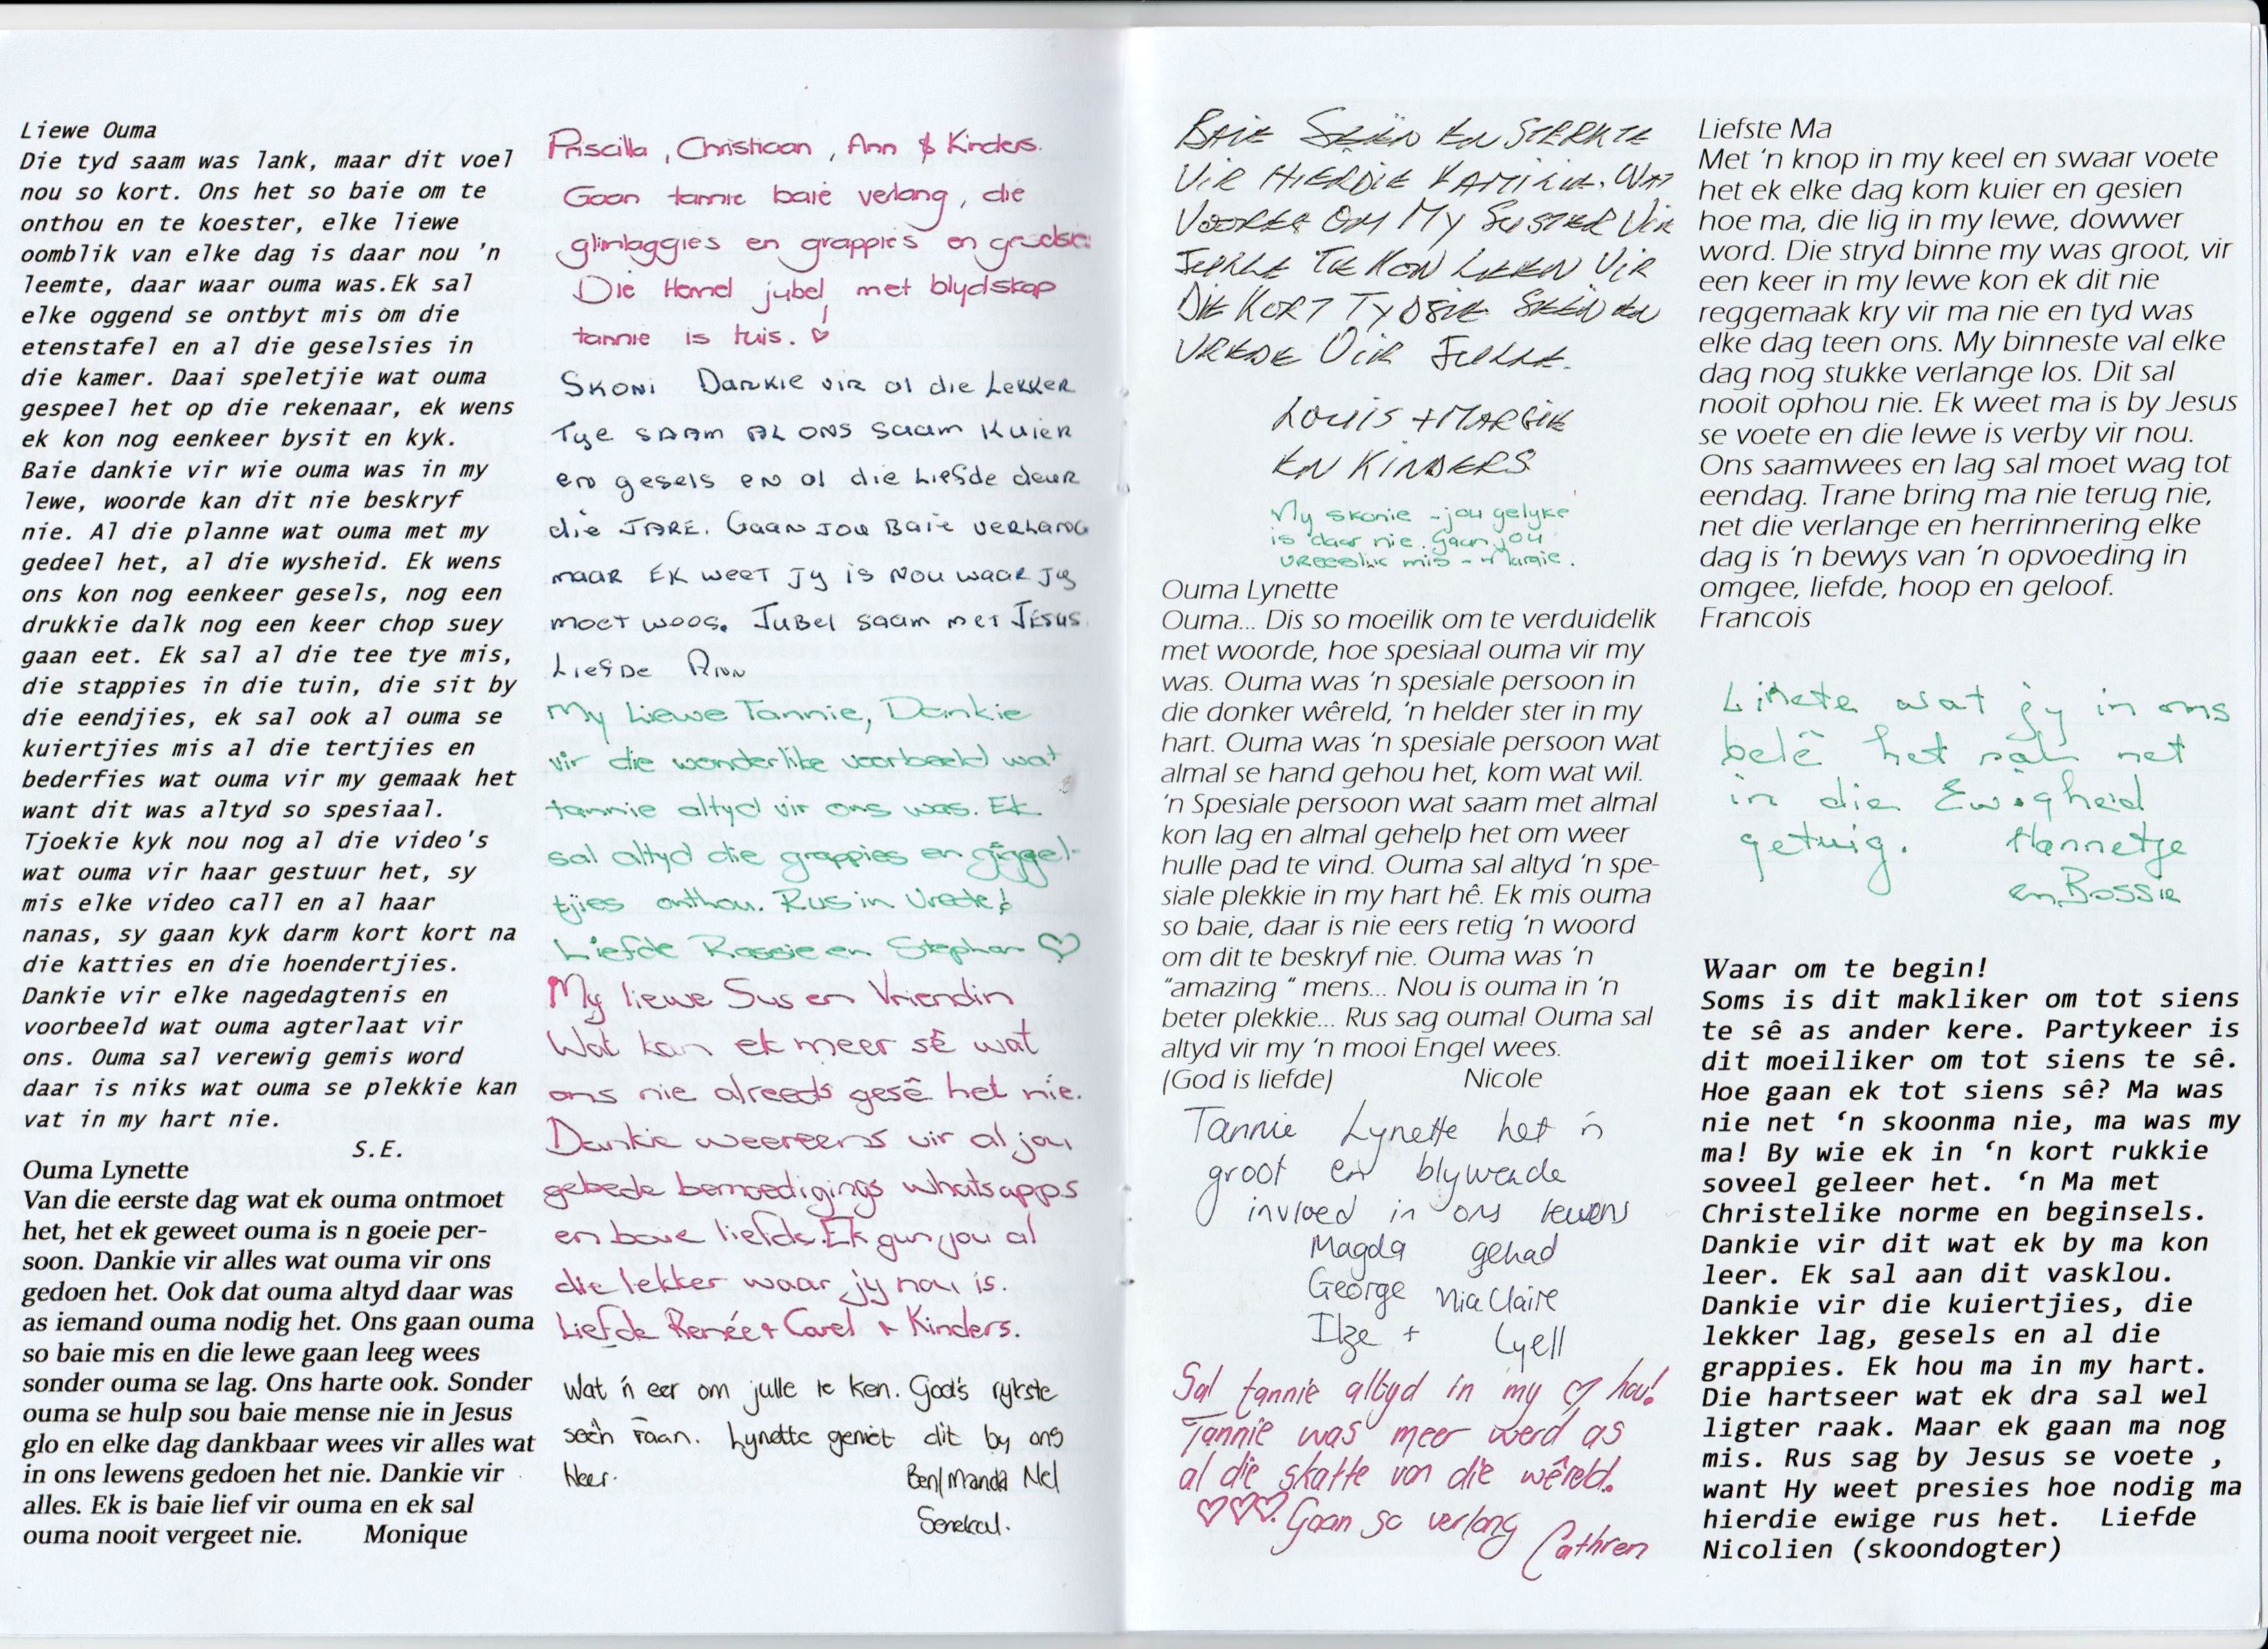 Liewe Ouma
Die tyd saam was lank, maar dit voel
nou so kort. Ons het so baie om te
onthou en te koester, elke liewe
oomblik van elke dag is daar nou 'n
leemte, daar waar ouma was.Ek sal
elke oggend se ontbyt mis om die
etenstafel en al die geselsies in
die kamer. Daai speletjie wat ouma
gespeel het op die rekenaar, ek wens
ek kon nog eenkeer bysit en kyk.
Baie dankie vir wie ouma was in my
lewe, woorde kan dit nie beskryf
nie. Al die planne wat ouma met my
gedeel het, al die wysheid. Ek wens
ons kon nog eenkeer gesels, nog een
drukkie dalk nog een keer chop suey
gaan eet. Ek sal al die tee tye mis,
die stappies in die tuin, die sit by
die eendjies, ek sal ook al ouma se
kuiertjies mis al die tertjies en
bederfies wat ouma vir my gemaak het
want dit was altyd so spesiaal.
Tjoekie kyk nou nog al die video's
wat ouma vir haar gestuur het, sy
mis elke video call en al haar
nanas, sy gaan kyk darm kort kort na
die katties en die hoendertjies.
Dankie vir elke nagedagtenis en
voorbeeld wat ouma agterlaat vir
ons. Ouma sal verewig gemis word
daar is niks wat ouma se plekkie kan
vat in my hart nie.
S.E.
Ouma Lynette
Van die eerste dag wat ek ouma ontmoet
het, het ek geweet ouma is n goeie per-
soon. Dankie vir alles wat ouma vir ons
gedoen het. Ook dat ouma altyd daar was
as iemand ouma nodig het. Ons gaan ouma
so baie mis en die lewe gaan leeg wees
sonder ouma se lag. Ons harte ook. Sonder
ouma se hulp sou baie mense nie in Jesus
glo en elke dag dankbaar wees vir alles wat
in ons lewens gedoen het nie. Dankie vir
alles. Ek is baie lief vir ouma en ek sal
ouma nooit vergeet nie. Monique
Priscilla, Christiaan, Ann & Kinders.
Gaan tannie baie verlang, die
glimlaggies en grappies en
Die Hemel jubel met blydskap
tannie is tuis. ♡
Skoni Dankie vir al die Lekker
Tye saam al ons saam kuier
en gesels en al die Liefde deur
die JARE. Gaan jou Baie verlang
maar Ek weet jy is nou waar jy
moet woos. Jubel saam met Jesus.
Liefde Ann
My Liewe Tannie, Dankie
vir die wonderlike voorbeeld wat
tannie altyd vir ons was. Ek
sal altyd die grappies en giggel-
tjies onthou. Rus in Vrede!
Liefde Rassie en Stephan ♡
My liewe Sus en Vriendin
Wat kan ek meer sê wat
ons nie alreeds gesê het nie.
Dankie weereens vir al jou
gebede bemoedigings whatsapps
en baie liefde. Ek gun jou al
die lekker waar jy nou is.
Liefde Renée + Carel + Kinders.
Wat 'n eer om julle te ken. God's rykste
seën Faan. Lynette geniet dit by ons
Heer. Ben/Manda Nel
Senekal.
BAIE SEËN EN STERKTE
VIR HIERDIE FAMILIE. WAT
VOORREG OM MY SUSTER VIR
JULLE TE KON LEEN VIR
DIE KORT TYDJIE SEËN EN
VREDE VIR JULLE.
LOUIS + MARGIE
EN KINDERS
My skonie - jou gelyke
is daar nie. Gaan jou
vreeslik mis - Margie.
Ouma Lynette
Ouma... Dis so moeilik om te verduidelik
met woorde, hoe spesiaal ouma vir my
was. Ouma was 'n spesiale persoon in
die donker wêreld, 'n helder ster in my
hart. Ouma was 'n spesiale persoon wat
almal se hand gehou het, kom wat wil.
'n Spesiale persoon wat saam met almal
kon lag en almal gehelp het om weer
hulle pad te vind. Ouma sal altyd 'n spe-
siale plekkie in my hart hê. Ek mis ouma
so baie, daar is nie eers retig 'n woord
om dit te beskryf nie. Ouma was 'n
"amazing " mens... Nou is ouma in 'n
beter plekkie... Rus sag ouma! Ouma sal
altyd vir my 'n mooi Engel wees.
(God is liefde) Nicole
Tannie Lynette het 'n
groot en blywende
invloed in ons lewens
Magda gehad
George Mia Claire
Ilze + Lyell
Sal tannie altyd in my ♡ hou!
Tannie was meer werd as
al die skatte van die wêreld.
♡♡♡. Gaan so verlang Cathren
Liefste Ma
Met 'n knop in my keel en swaar voete
het ek elke dag kom kuier en gesien
hoe ma, die lig in my lewe, dowwer
word. Die stryd binne my was groot, vir
een keer in my lewe kon ek dit nie
reggemaak kry vir ma nie en tyd was
elke dag teen ons. My binneste val elke
dag nog stukke verlange los. Dit sal
nooit ophou nie. Ek weet ma is by Jesus
se voete en die lewe is verby vir nou.
Ons saamwees en lag sal moet wag tot
eendag. Trane bring ma nie terug nie,
net die verlange en herrinnering elke
dag is 'n bewys van 'n opvoeding in
omgee, liefde, hoop en geloof.
Francois
wat jy in ons
belê het sal net
in die Ewigheid
getuig. Hannetjie
en Bossie
Waar om te begin!
Soms is dit makliker om tot siens
te sê as ander kere. Partykeer is
dit moeiliker om tot siens te sê.
Hoe gaan ek tot siens sê? Ma was
nie net 'n skoonma nie, ma was my
ma! By wie ek in 'n kort rukkie
soveel geleer het. 'n Ma met
Christelike norme en beginsels.
Dankie vir dit wat ek by ma kon
leer. Ek sal aan dit vasklou.
Dankie vir die kuiertjies, die
lekker lag, gesels en al die
grappies. Ek hou ma in my hart.
Die hartseer wat ek dra sal wel
ligter raak. Maar ek gaan ma nog
mis. Rus sag by Jesus se voete ,
want Hy weet presies hoe nodig ma
hierdie ewige rus het. Liefde
Nicolien (skoondogter)